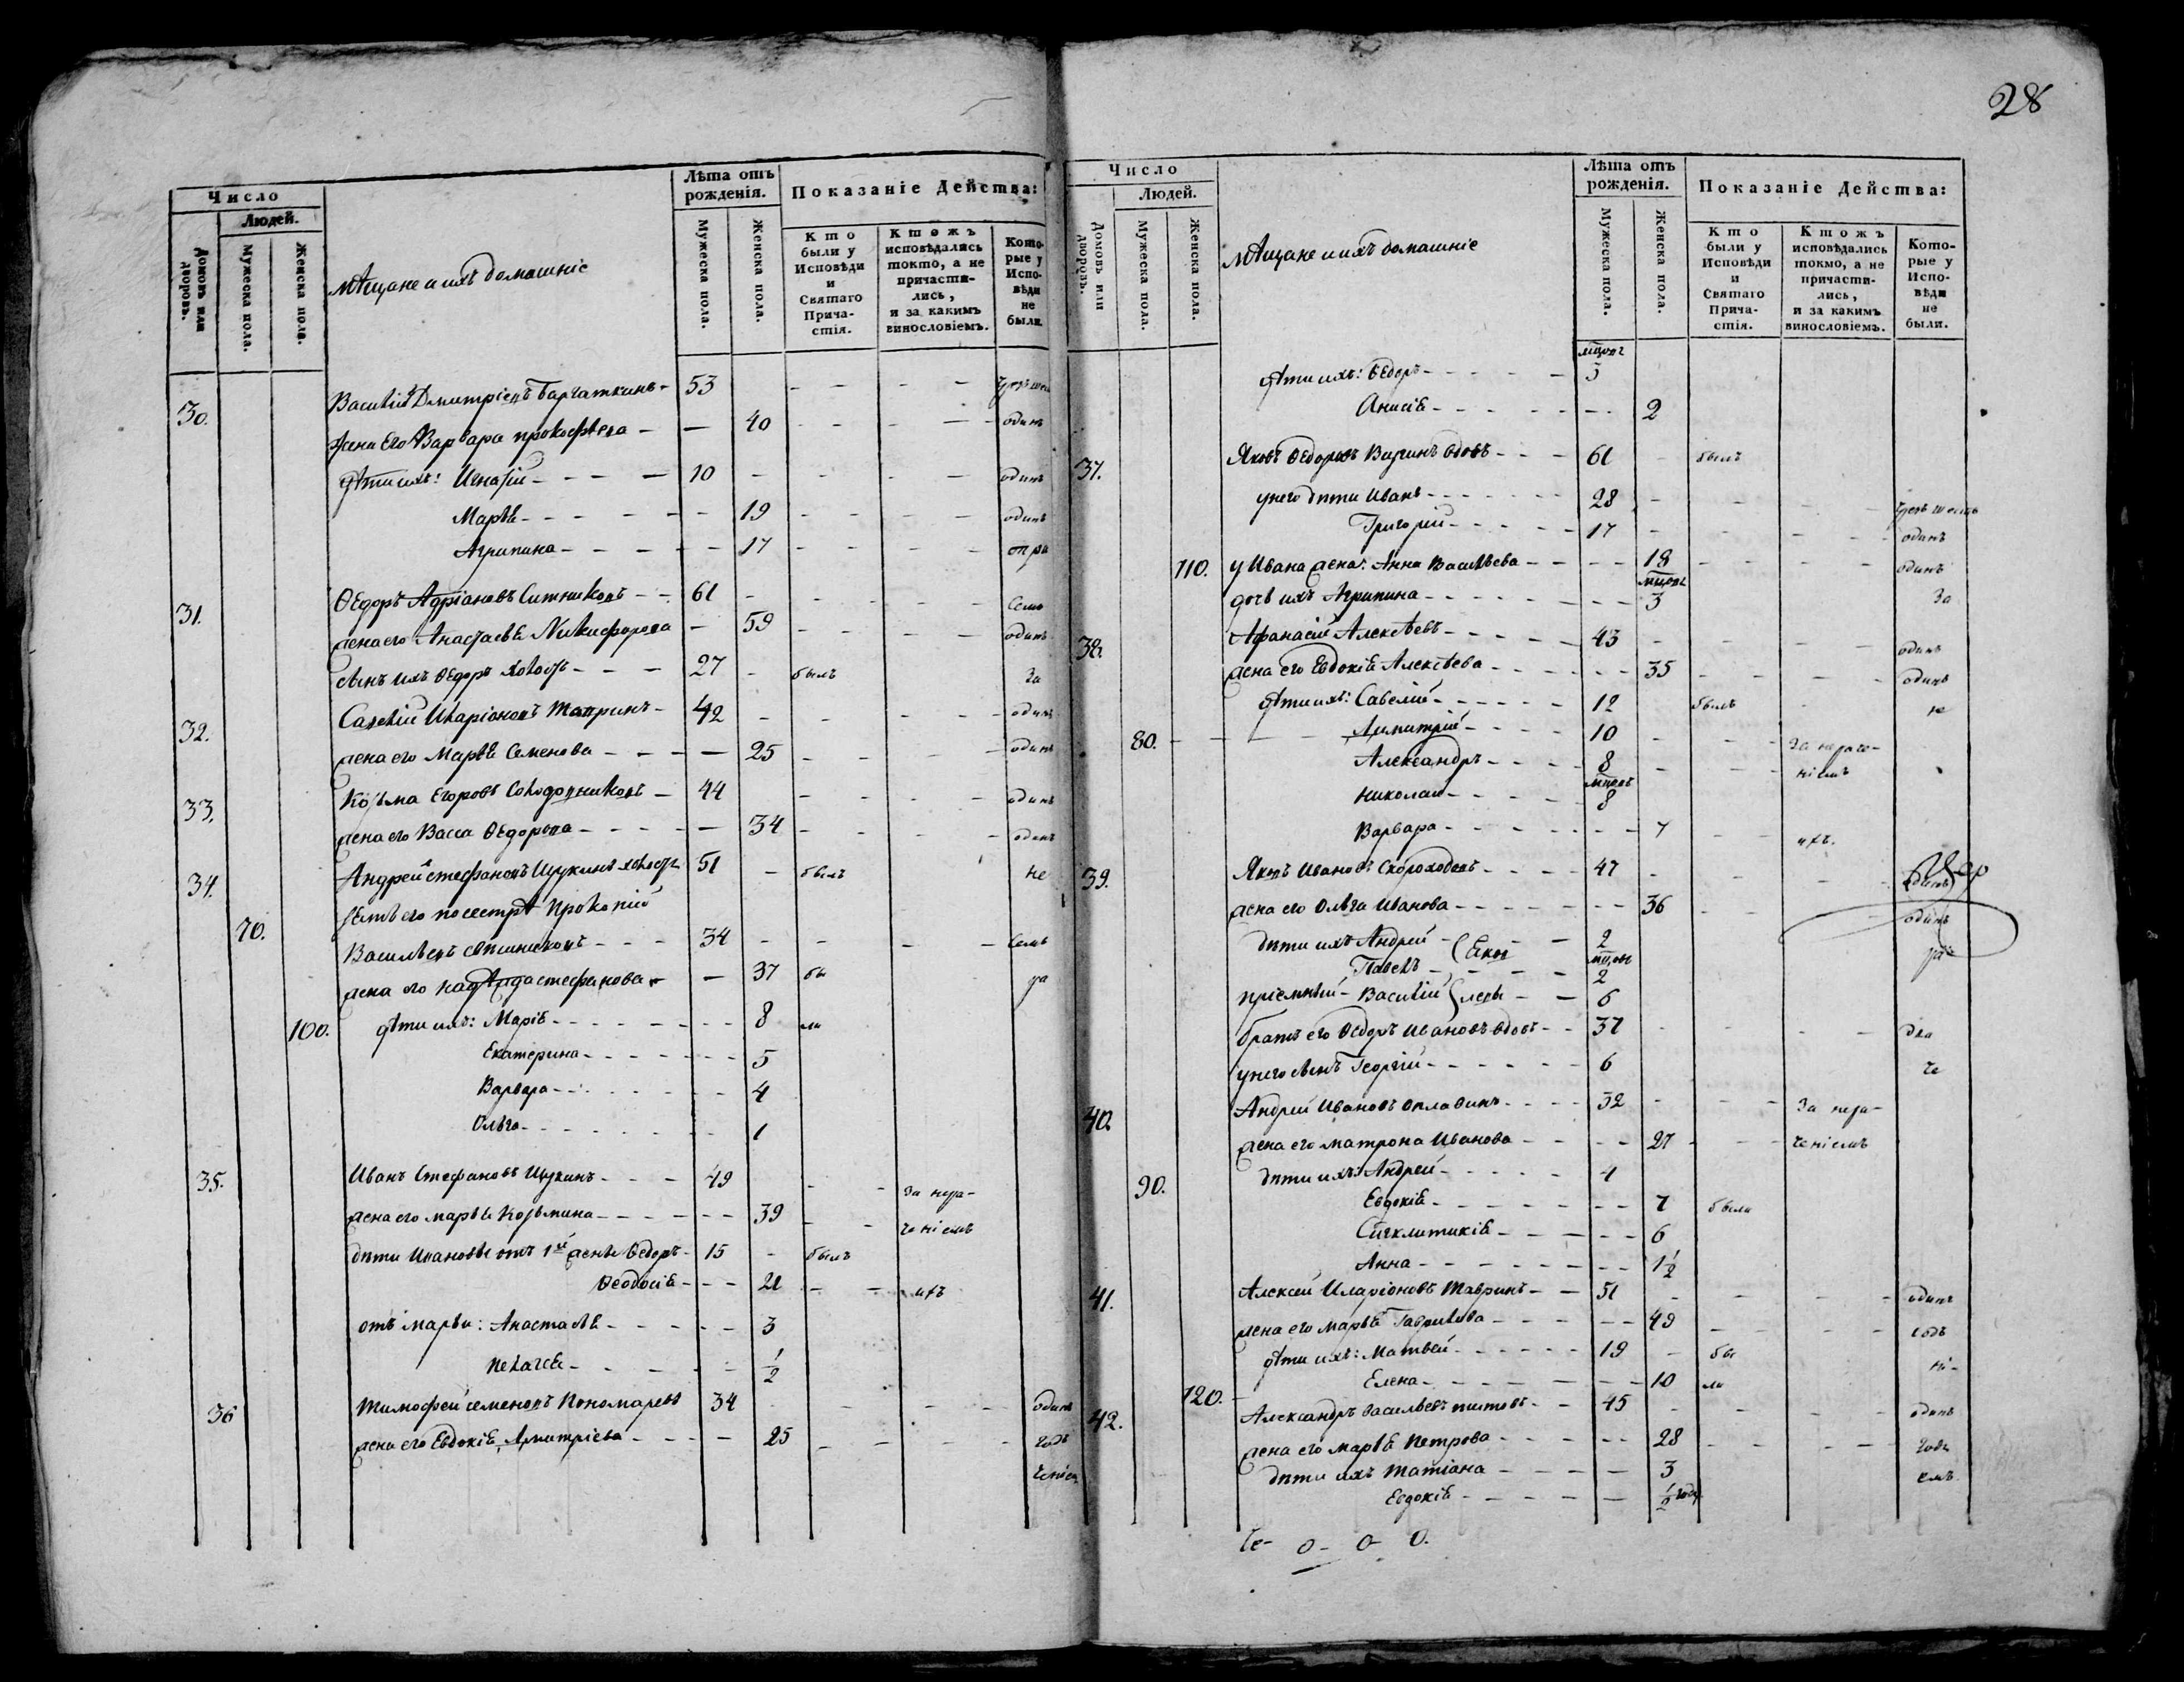 28
Число
Людей.
Домовъ или дворовъ.
Мужеска пола.
Женска пола.
Мѣщане и ихъ домашніе
Лѣта отъ рожденія.
Мужеска пола.
Женска пола.
Показаніе Действа:
Кто были у Исповѣди и Святаго Прича-стія.
Ктожъ исповѣдались токмо, а не причасти-лись, и за какимъ винословіемъ.
Кото-рые у Испо-вѣди не были.
30. Василій Дмитріевъ - 53
жена его Варвара Прокофьева - 40 одинъ
дѣти ихъ: Игнатій - 10 одинъ
Марья - 19 одинъ
Агрипина - 17
31. Ѳедоръ Адріановъ Ситниковъ - 61
жена его Анастасья Никифорова - 59 одинъ
сынъ ихъ Ѳедоръ холостъ - 27 былъ за
32. Савелій Иларіоновъ Тавринъ - 42 одинъ
жена его Марья Семенова - 25 одинъ
33. Козьма Егоровъ Солодовниковъ - 44 одинъ
жена его Васса Ѳедорова - 34 одинъ
34. Андрей Стефановъ Щукинъ холостъ 51 былъ не
зять его по сестрѣ Прокопій
70. Васильевъ - 34
жена его Надежда Стефанова - 37 бы ра
100. дѣти ихъ: Марія - 8 ли
Екатерина - 5
Варвара - 4
Ольга - 1
35. Иванъ Стефановъ Щукинъ - 49 за нера-
жена его Марья Козьмина - 39 ченіемъ
дѣти Ивановы отъ 1й жены Ѳедоръ - 15 былъ
Ѳеодосія - 21 ихъ
отъ Марьи: Анастасья - 3
Пелагея - 1/2
36 Тимофей Семеновъ Пономаревъ 34 одинъ
жена его Евдокія Дмитріева - 25
Число
Людей.
Домовъ или дворовъ.
Мужеска пола.
Женска пола.
Мѣщане и ихъ домашніе
Лѣта отъ рожденія.
Мужеска пола.
Женска пола.
Показаніе Действа:
Кто были у Исповѣди и Святаго Прича-стія.
Ктожъ исповѣдались токмо, а не причасти-лись, и за какимъ винословіемъ.
Кото-рые у Испо-вѣди не были.
дѣти ихъ: Ѳедоръ - 3
Анисія - 2
37. Яковъ Ѳедоровъ вдовъ - 61 былъ
у него дѣти Иванъ - 28
Григорій - 17 одинъ
110. у Ивана жена: Анна Васильева - 18 одинъ
дочь ихъ Агрипина - 3 за
38. Афанасій Алексѣевъ - 43 одинъ
жена его Евдокія Алексѣева - 35 одинъ
дѣти ихъ: Савелій - 12 былъ не
80. Димитрій - 10 за нераче-
Александръ - 8 ніемъ
Николай - 8
Варвара - 7 ихъ.
39. Яковъ Ивановъ Скороходовъ - 47
жена его Ольга Иванова - 36 одинъ
дѣти ихъ Андрей - 2 ра
Павелъ - 2
пріемный - Василій - 6
братъ его Ѳедоръ Ивановъ вдовъ - 37 два
у него сынъ Георгій - 6 че
40. Андрей Ивановъ - 32 за нера-
жена его Матрона Иванова - 27 ченіемъ
90. дѣти ихъ: Андрей - 4
Евдокія - 7 были
Сигклитикія - 6
Анна - 1 1/2
41. Алексѣй Иларіоновъ Тавринъ - 51 одинъ
жена его Марья Гаврилова - 49
дѣти ихъ: Матвѣй - 19 бы ні-
120. Елена - 10 ли
42. Александръ Васильевъ Титовъ - 45 одинъ
жена его Марья Петрова - 28
дѣти ихъ Татіана - 3 емъ
Евдокія - 1/2